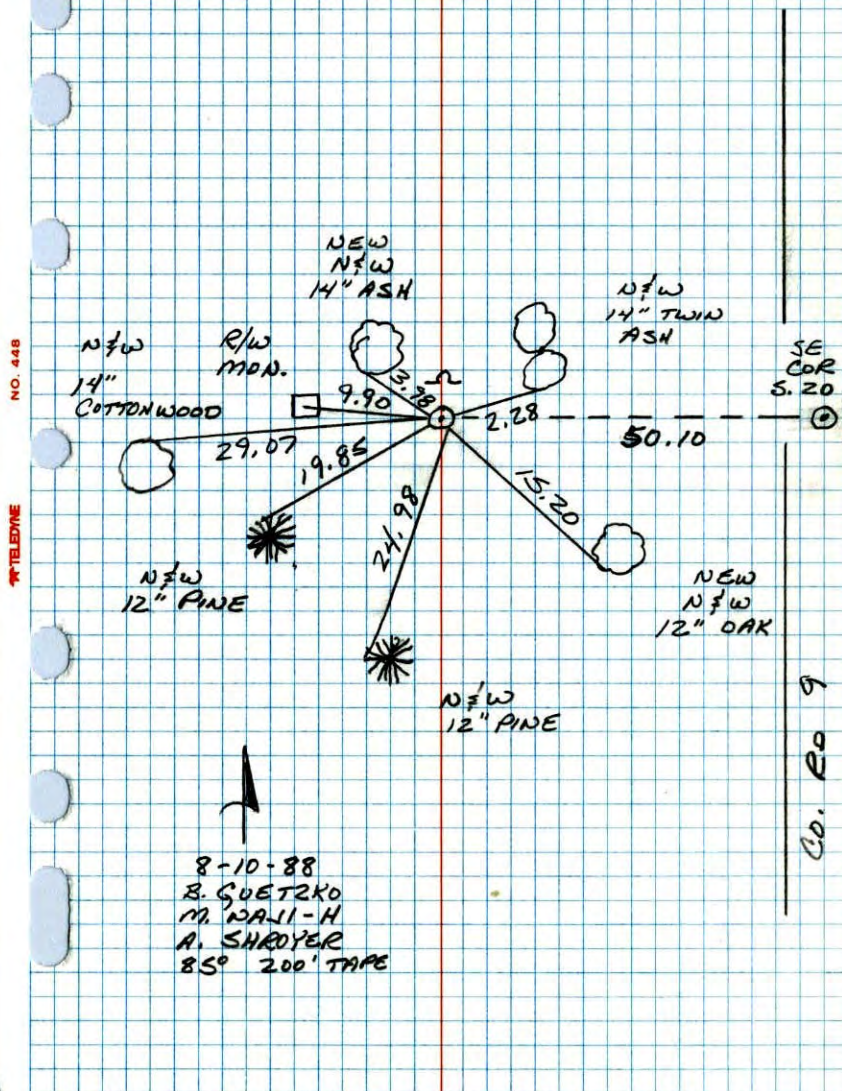 NEW
N&W
14" ASH
N&W
14" TWIN
ASH
N&W
14"
COTTONWOOD
R/W
MON.
SE
COR
S. 20
3.98
9.90
2.28
50.10
29.07
19.85
24.98
15.20
N&W
12" PINE
NEW
N&W
12" OAK
N&W
12" PINE
CO. RD 9
8-10-88
B. GUETZKO
M. NAJI-H
A. SHROYER
85° 200' TAPE
NO. 448
TELEDYNE